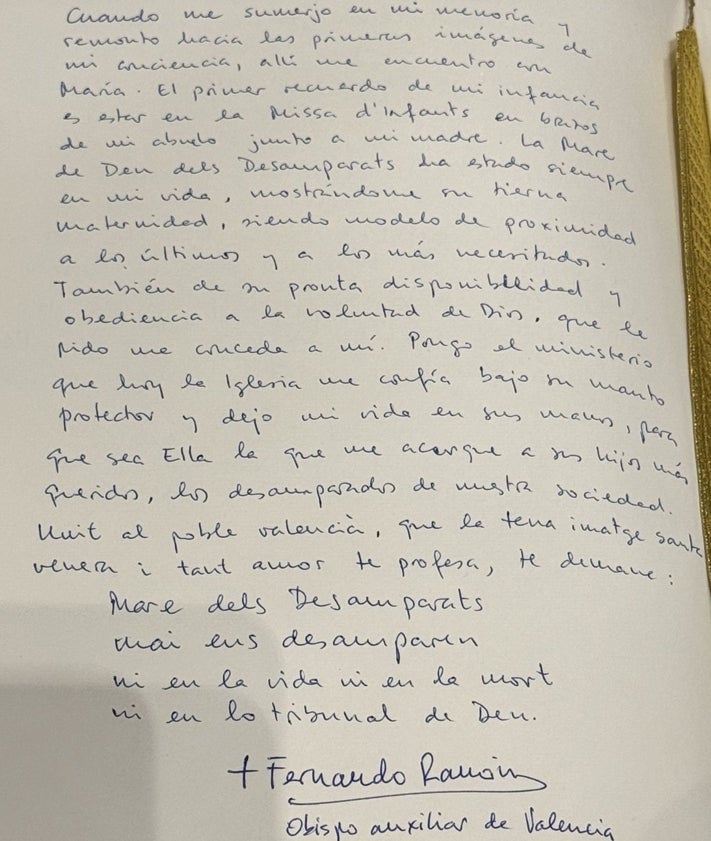 Cuando me sumerjo en mi memoria y
remonto hacia las primeras imágenes de
mi conciencia, allí me encuentro con
María. El primer recuerdo de mi infancia
es estar en la Missa d'Infants en brazos
de mi abuelo junto a mi madre. La Mare
de Deu dels Desamparats ha estado siempre
en mi vida, mostrándome su tierna
maternidad, siendo modelo de proximidad
a los últimos y a los más necesitados.
También de su pronta disponibilidad y
obediencia a la voluntad de Dios, que le
pido me conceda a mí. Pongo el ministerio
que hoy la Iglesia me confía bajo su manto
protector y dejo mi vida en sus manos, para
que sea Ella la que me acerque a sus hijos más
queridos, los desamparados de nuestra sociedad.
Unit al poble valencià, que la teua imatge santa
venera i tant amor te profesa, te demane:
Mare dels Desamparats
mai ens desamparen
ni en la vida ni en la mort
ni en lo tribunal de Deu.
+ Fernando Ramón
Obispo auxiliar de Valencia